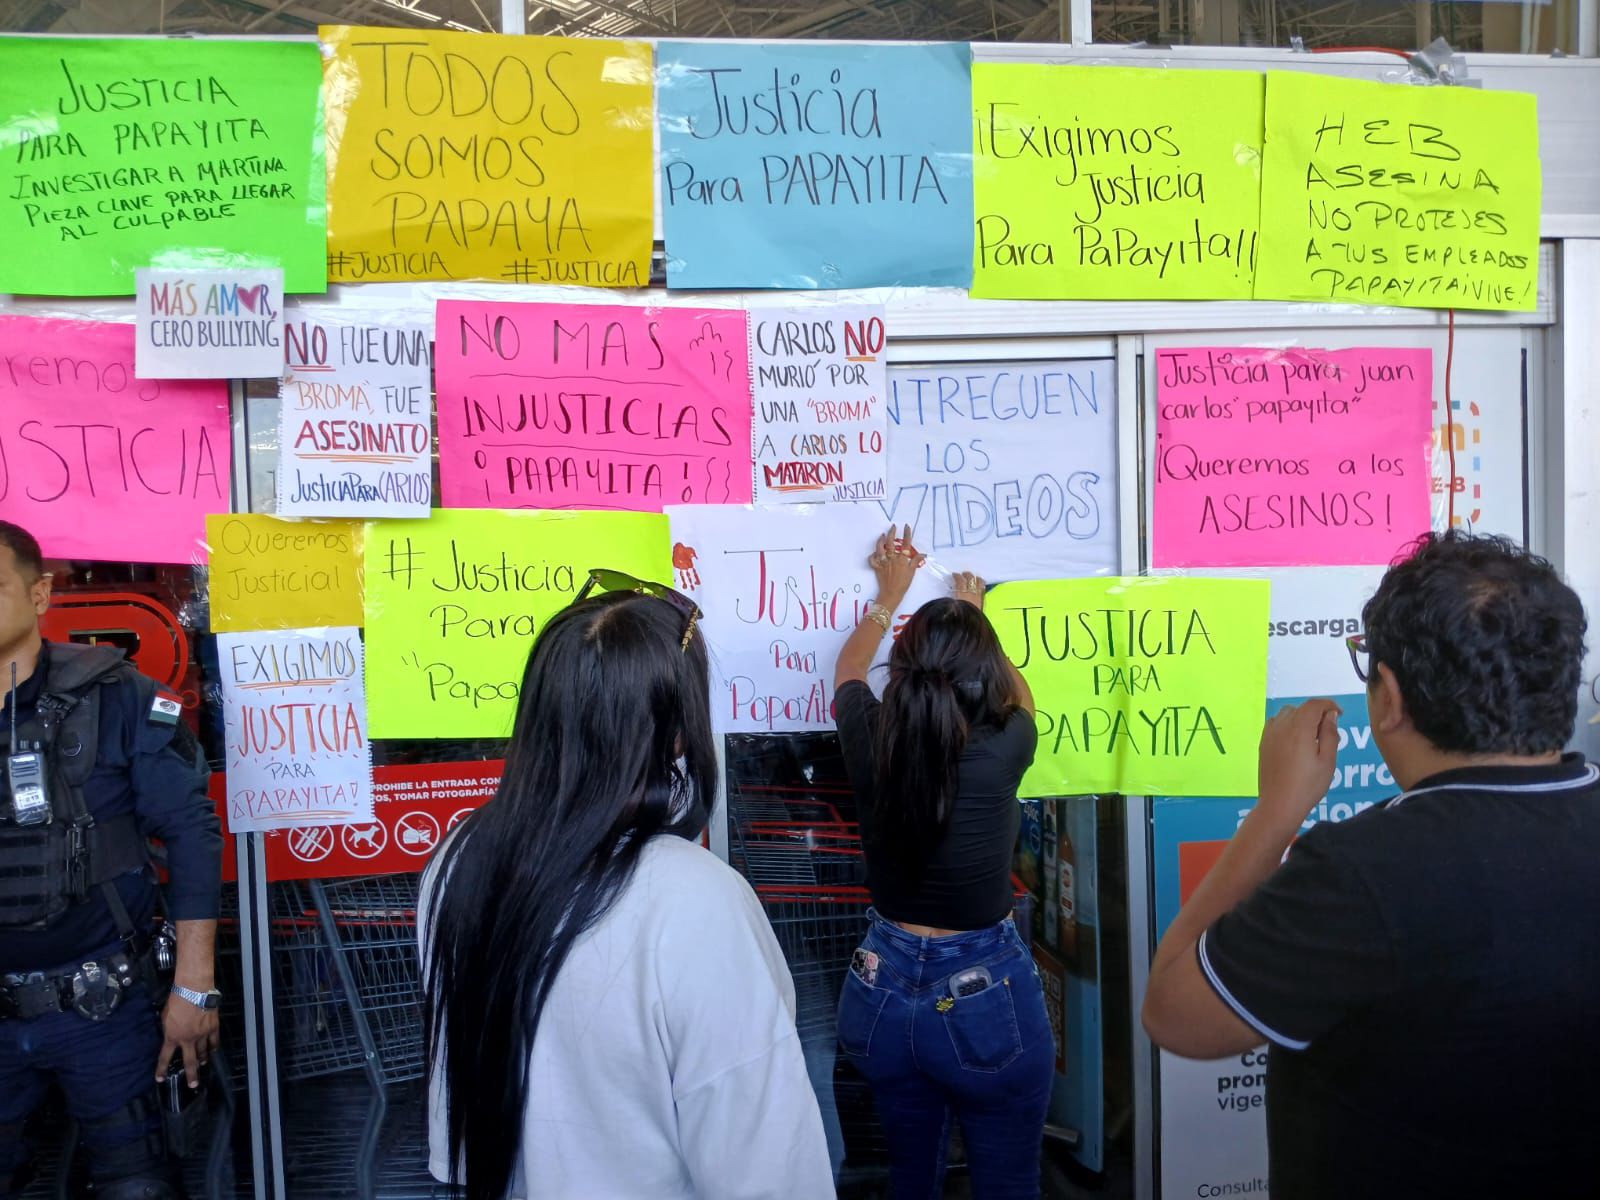 JUSTICIA
PARA PAPAYITA
INVESTIGAR A MARTINA
PIEZA CLAVE PARA LLEGAR
AL CULPABLE
TODOS
SOMOS
PAPAYA
#JUSTICIA #JUSTICIA
Justicia
Para PAPAYITA
¡Exigimos
Justicia
Para PaPayita!!
HEB
ASESINA
NO PROTEJES
A TUS EMPLEADOS
PAPAYITA ¡VIVE!
MÁS AMOR,
CERO BULLYING
remos
USTICIA
NO FUE UNA
"BROMA", FUE
ASESINATO
JUSTICIA PARA CARLOS
NO MAS
INJUSTICIAS
¡PAPAYITA!
CARLOS NO
MURIÓ POR
UNA "BROMA"
A CARLOS LO
MATARON
JUSTICIA
NTREGUEN
LOS
VIDEOS
Justicia para juan
carlos "papayita"
¡Queremos a los
ASESINOS!
E-B
Queremos
Justicia!
#Justicia
Para
"Papa
Justici
Para
"Papayit
JUSTICIA
PARA
PAPAYITA
EXIGIMOS
JUSTICIA
PARA
¡PAPAYITA!
PROHIBE LA ENTRADA CON
OS, TOMAR FOTOGRAFÍ
escarga
ov
orro
cion
Co
prom
vige
Consult